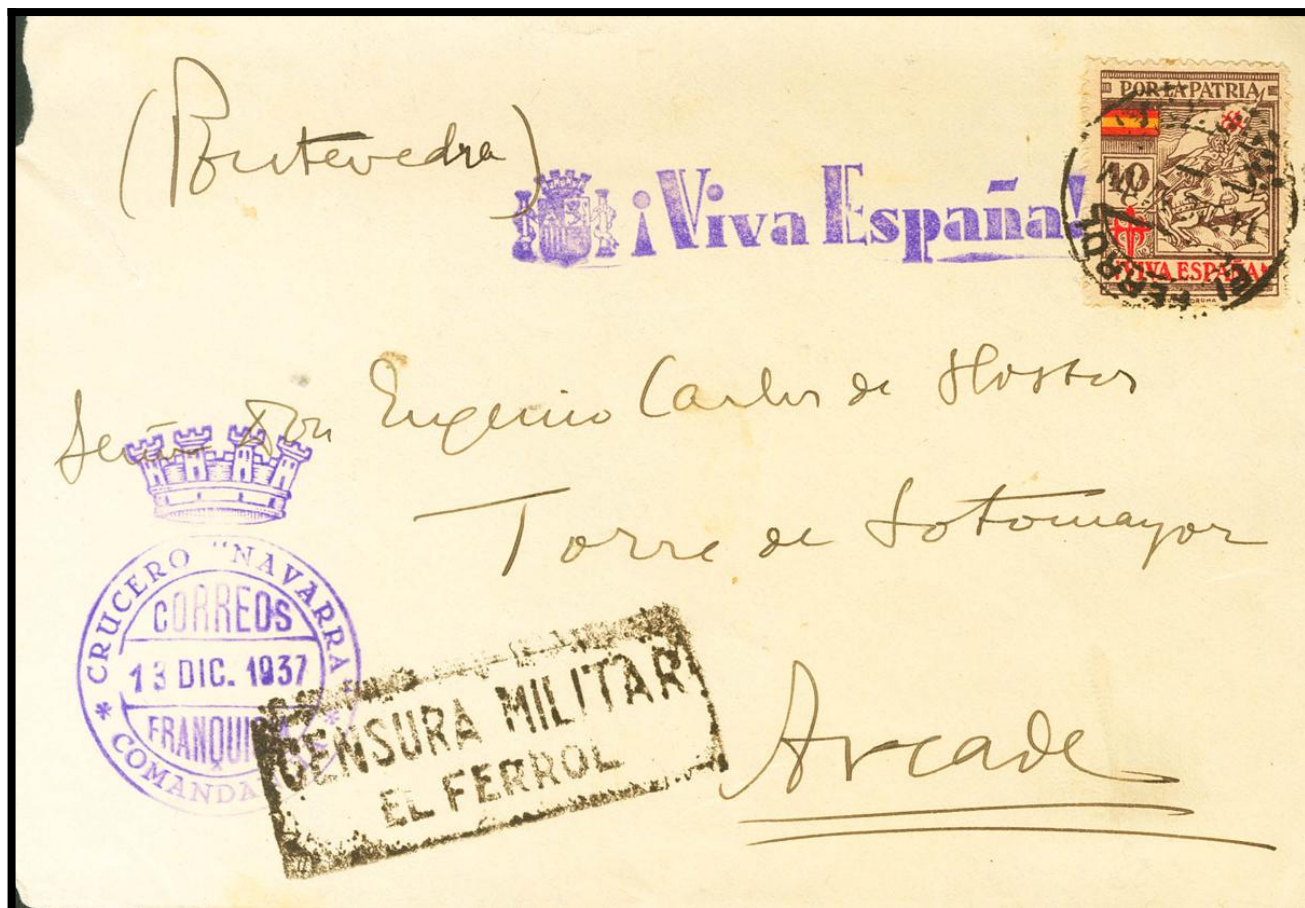 (Pontevedra)
¡Viva España!
POR LA PATRIA
40
¡VIVA ESPAÑA!
EL FERROL
Señor Don Eugenio Carlos de Hostos
Torre de Sotomayor
Arcade
* CRUCERO "NAVARRA" *
CORREOS
13 DIC. 1937
CENSURA MILITAR
EL FERROL